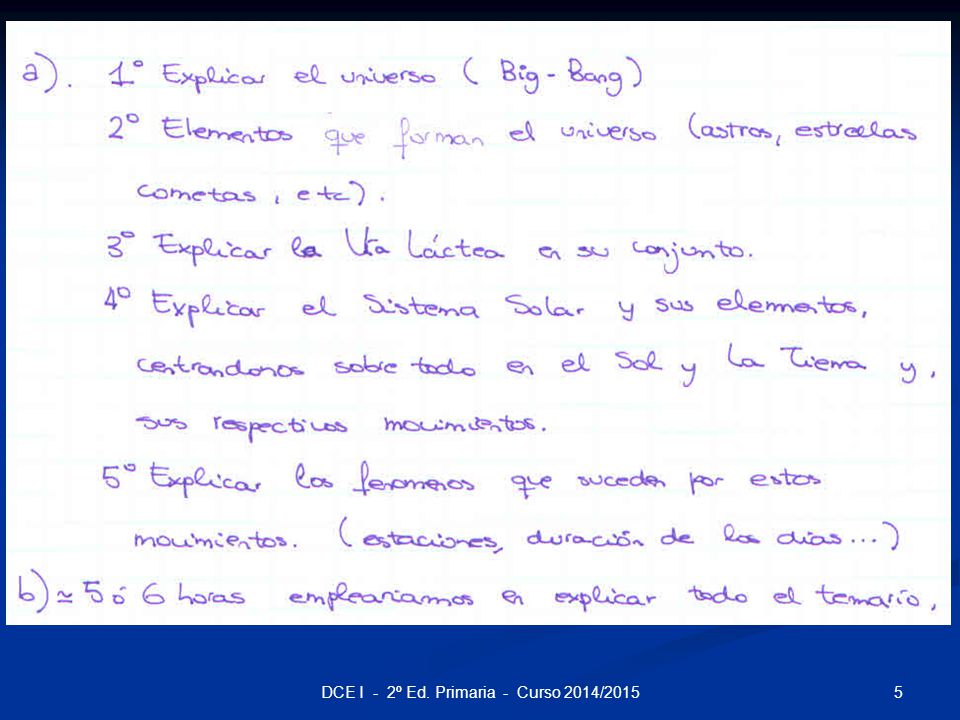 a). 1º Explicar el universo (Big-Bang)
2º Elementos que forman el universo (astros, estrellas
cometas, etc).
3º Explicar la Vía Láctea en su conjunto.
4º Explicar el Sistema Solar y sus elementos,
centrandonos sobre todo en el Sol y La Tierra y,
sus respectivos movimientos.
5º Explicar los fenomenos que suceden por estos
movimientos. (estaciones, duración de los dias...)
b) ≃ 5 ó 6 horas empleariamos en explicar todo el temario,
DCE I - 2º Ed. Primaria - Curso 2014/2015 5